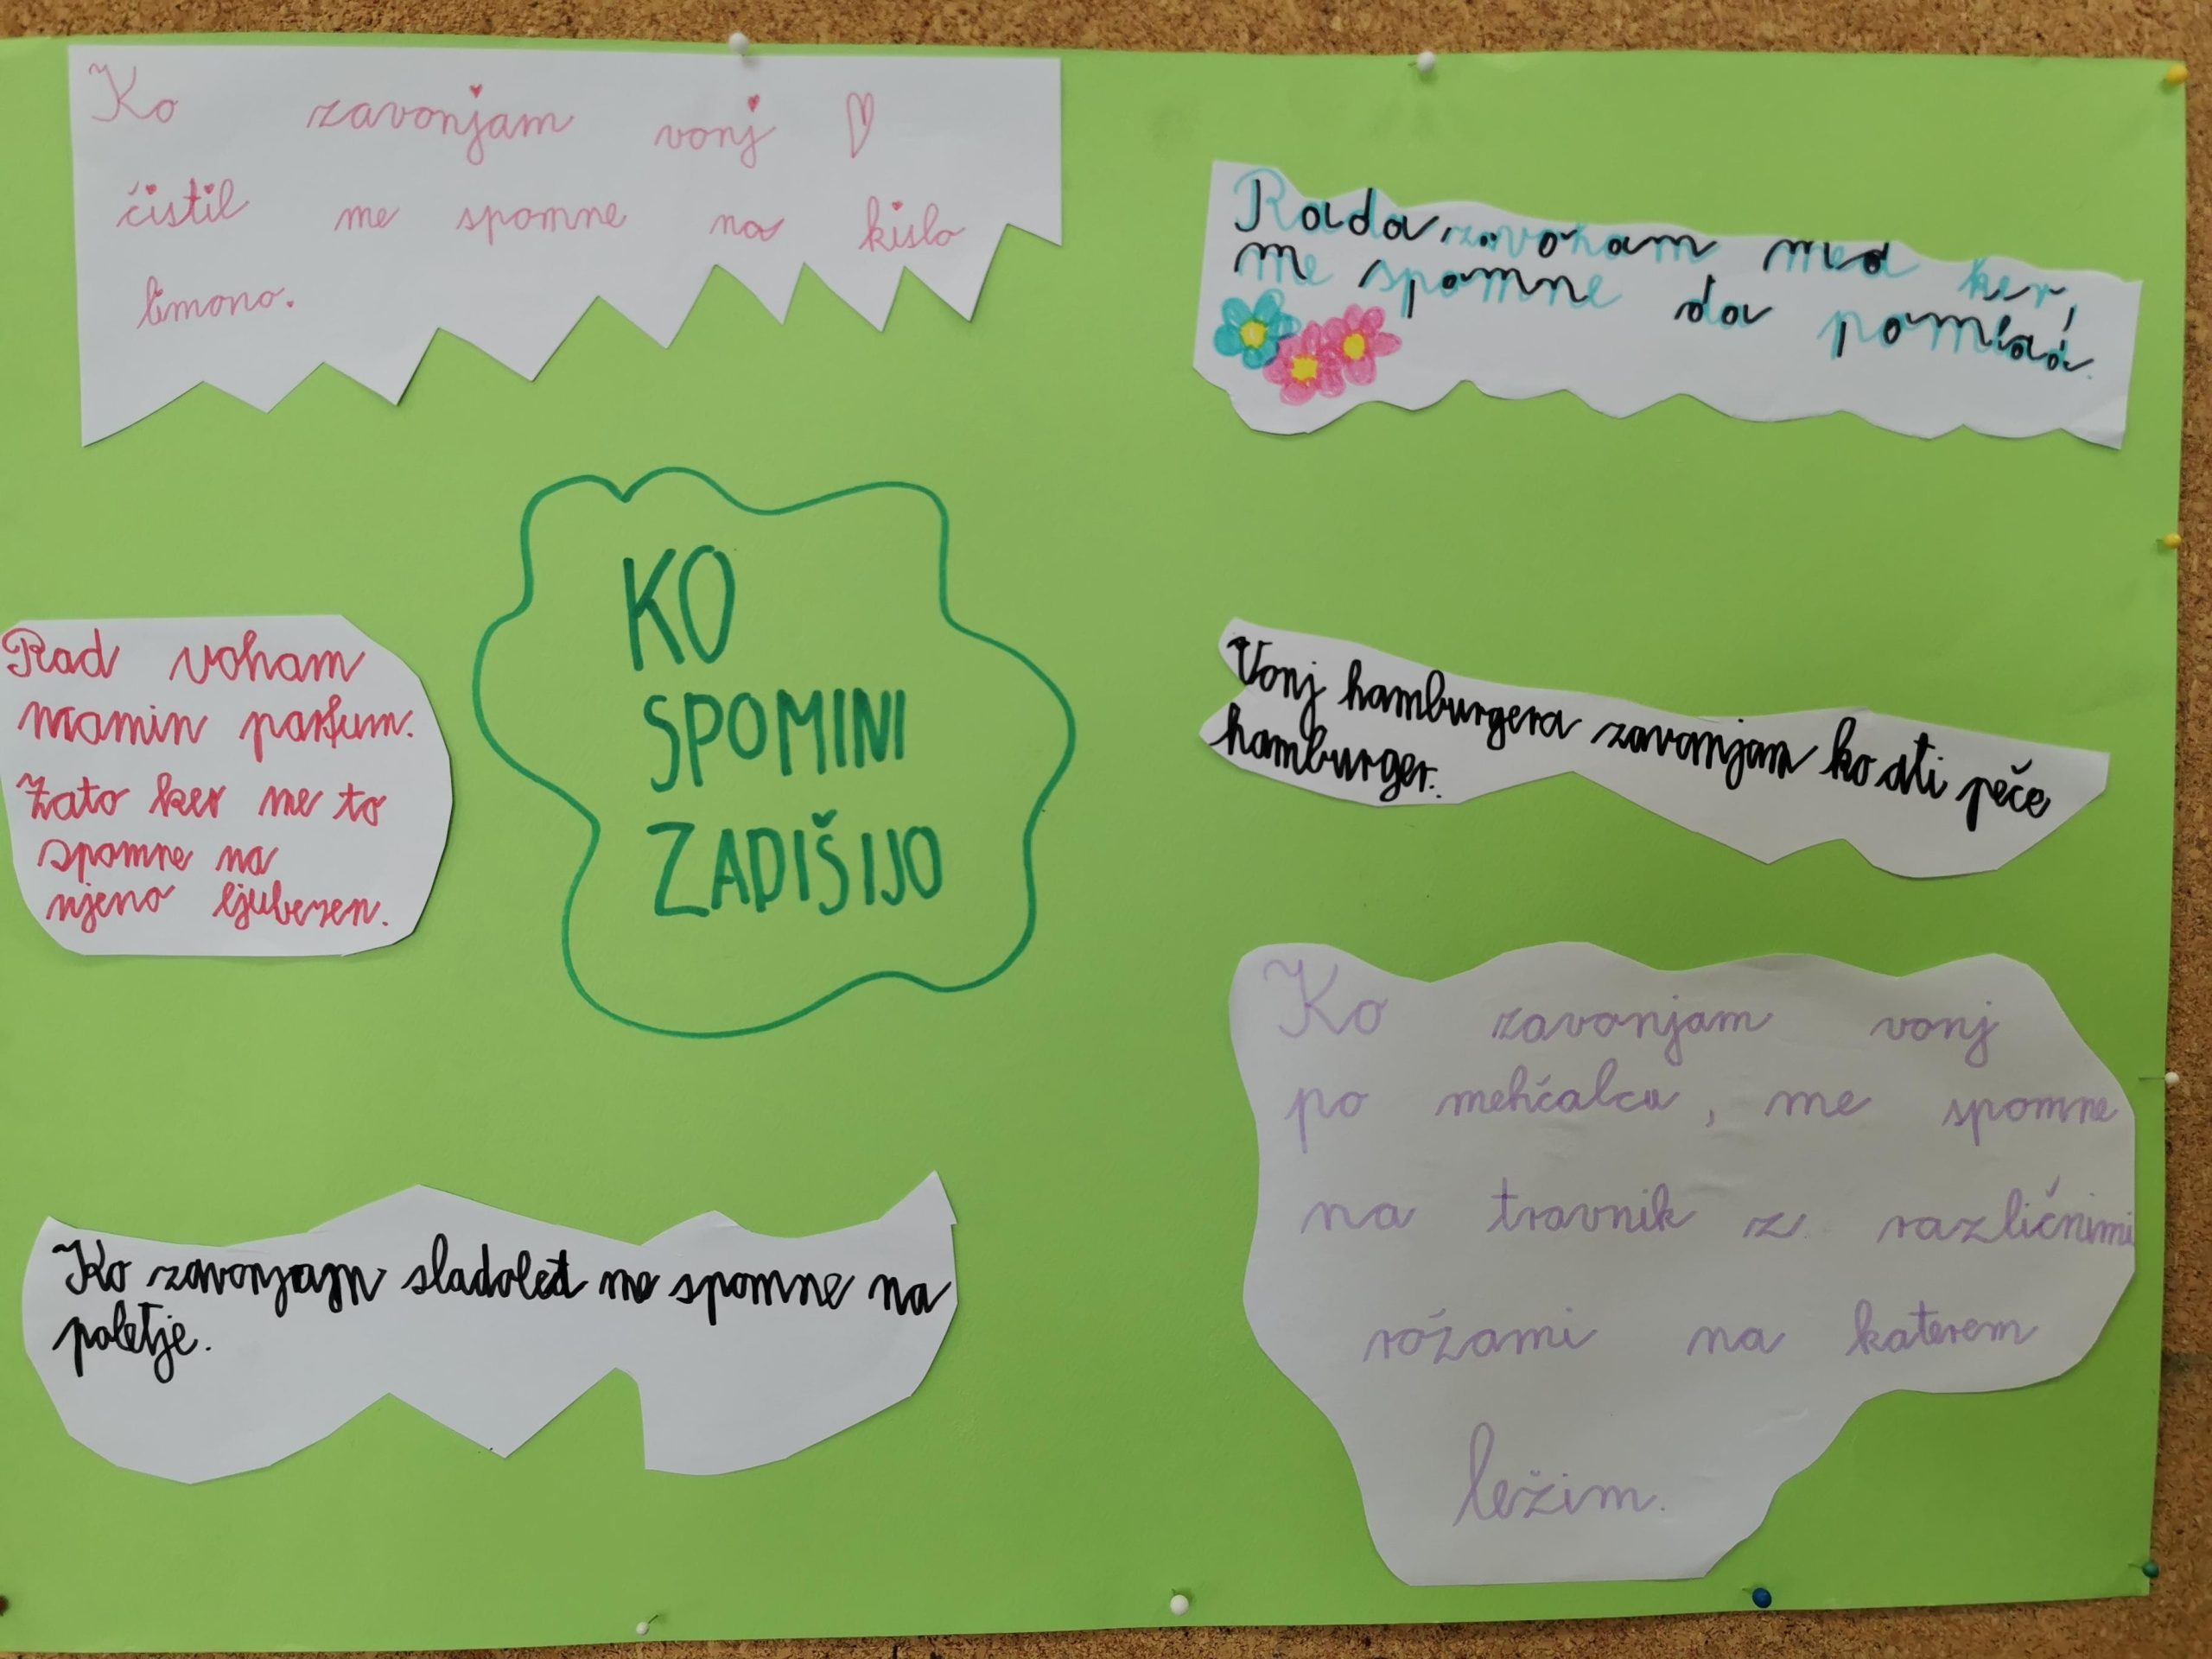 Ko zavonjam vonj
čistil me spomne na kislo
limono.
Rada zavoham med ker
me spomne da
Rad voham
mamin parfum.
Zato ker me to
spomne na
njeno ljubezen.
KO
SPOMINI
ZADIŠIJO
Vonj hamburgera zavonjam ko ati peče
hamburger.
Ko zavonjajm sladoled me spomne na
poletje.
Ko zavonjam vonj
po mehčalcu, me spomne
na travnik z različnimi
rožami na katerem
ležim.